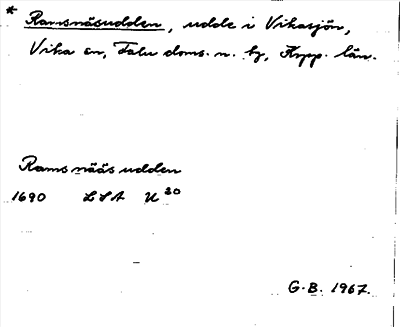 * Ramsnäsudden, udde i Vikasjön,
Vika sn, Falu doms. n. by, Kopp. län.
Ramsnääs udden
1690 LSA U 30
G.B. 1967.